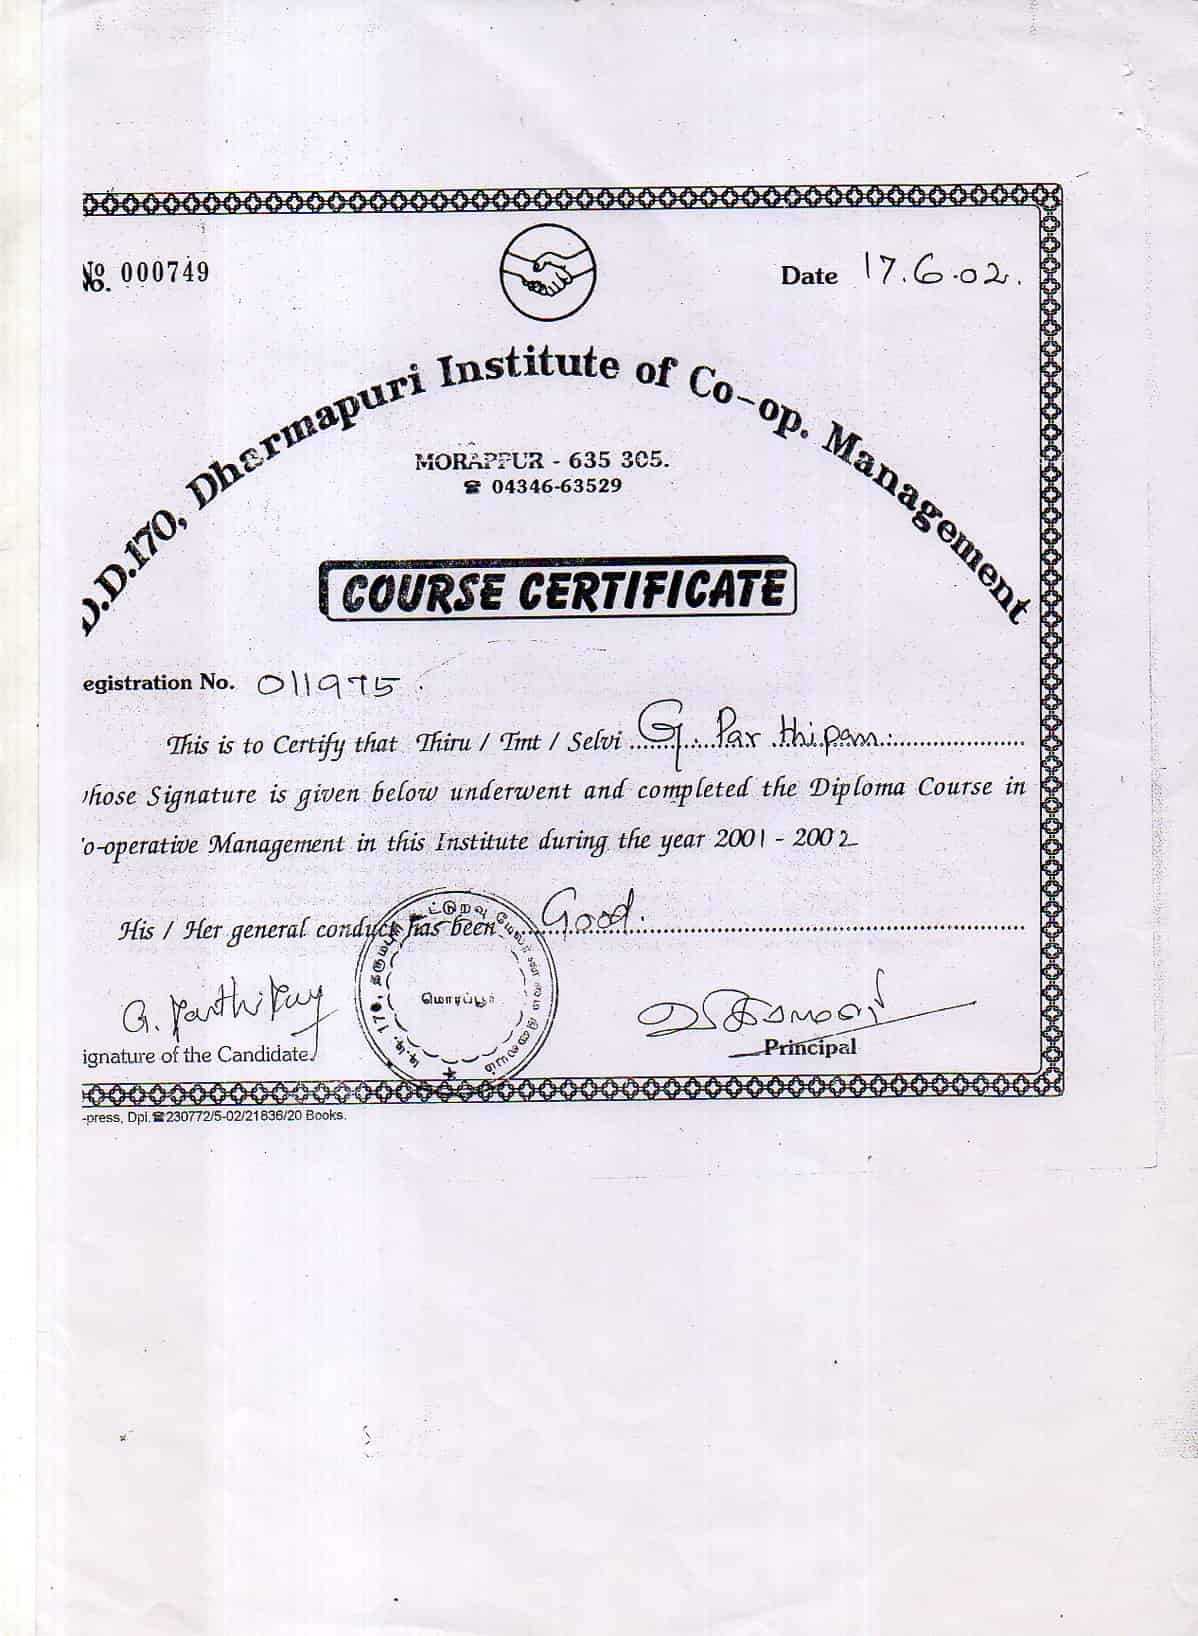 No. 000749
Date 17.6.02.
D.D.170, Dharmapuri Institute of Co-op. Management
MORAPPUR - 635 305.
☎ 04346-63529
COURSE CERTIFICATE
egistration No. 011975.
This is to Certify that Thiru / Tmt / Selvi G. Parthipam.
hose Signature is given below underwent and completed the Diploma Course in
o-operative Management in this Institute during the year 2001 - 2002
His / Her general conduct has been Good.
மொரப்பூர்
ignature of the Candidate.
Principal
-press, Dpl.☎230772/5-02/21836/20 Books.